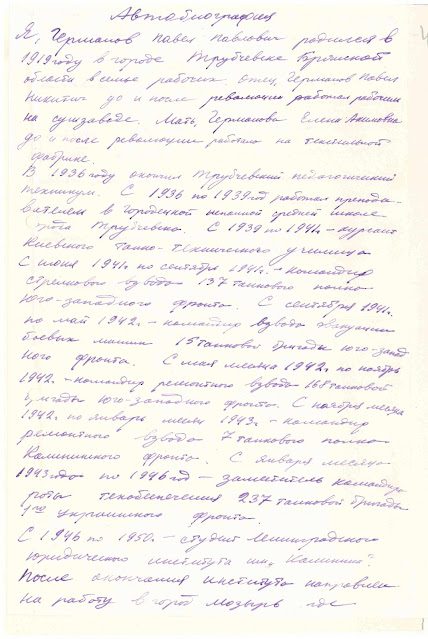 Автобиография
Я, Германов Павел Павлович родился в
1919 году в городе Трубчевске Брянской
области в семье рабочих. Отец, Германов Павел
Никитич до и после революции работал рабочим
на сушзаводе. Мать, Германова Елена Акимовна
до и после революции работала на текстильной
фабрике.
В 1936 году окончил Трубчевский педагогический
техникум. С 1936 по 1939 год работал препода-
вателем в городской неполной средней школе
города Трубчевска. С 1939 по 1941г. - курсант
Киевского танко-технического училища
С июня 1941г. по сентябрь 1941г. - командир
стрелкового взвода 137 танкового полка
юго-западного фронта. С сентября 1941г.
по май 1942. - командир взвода эвакуации
боевых машин 15 танковой бригады юго-запад
ного фронта. С мая месяца 1942г. по ноябрь
1942. - командир ремонтного взвода 168 танковой
бригады юго-западного фронта. С ноября месяца
1942г. по январь месяц 1943г. - командир
ремонтного взвода 7 танкового полка
Калининского фронта. С января месяца
1943 года по 1946 год - заместитель командира
роты техобеспечения 237 танковой бригады
1го украинского фронта.
С 1946 по 1950. - студент Ленинградского
юридического института им. Калинина".
После окончания института направлен
на работу в город Мозырь где